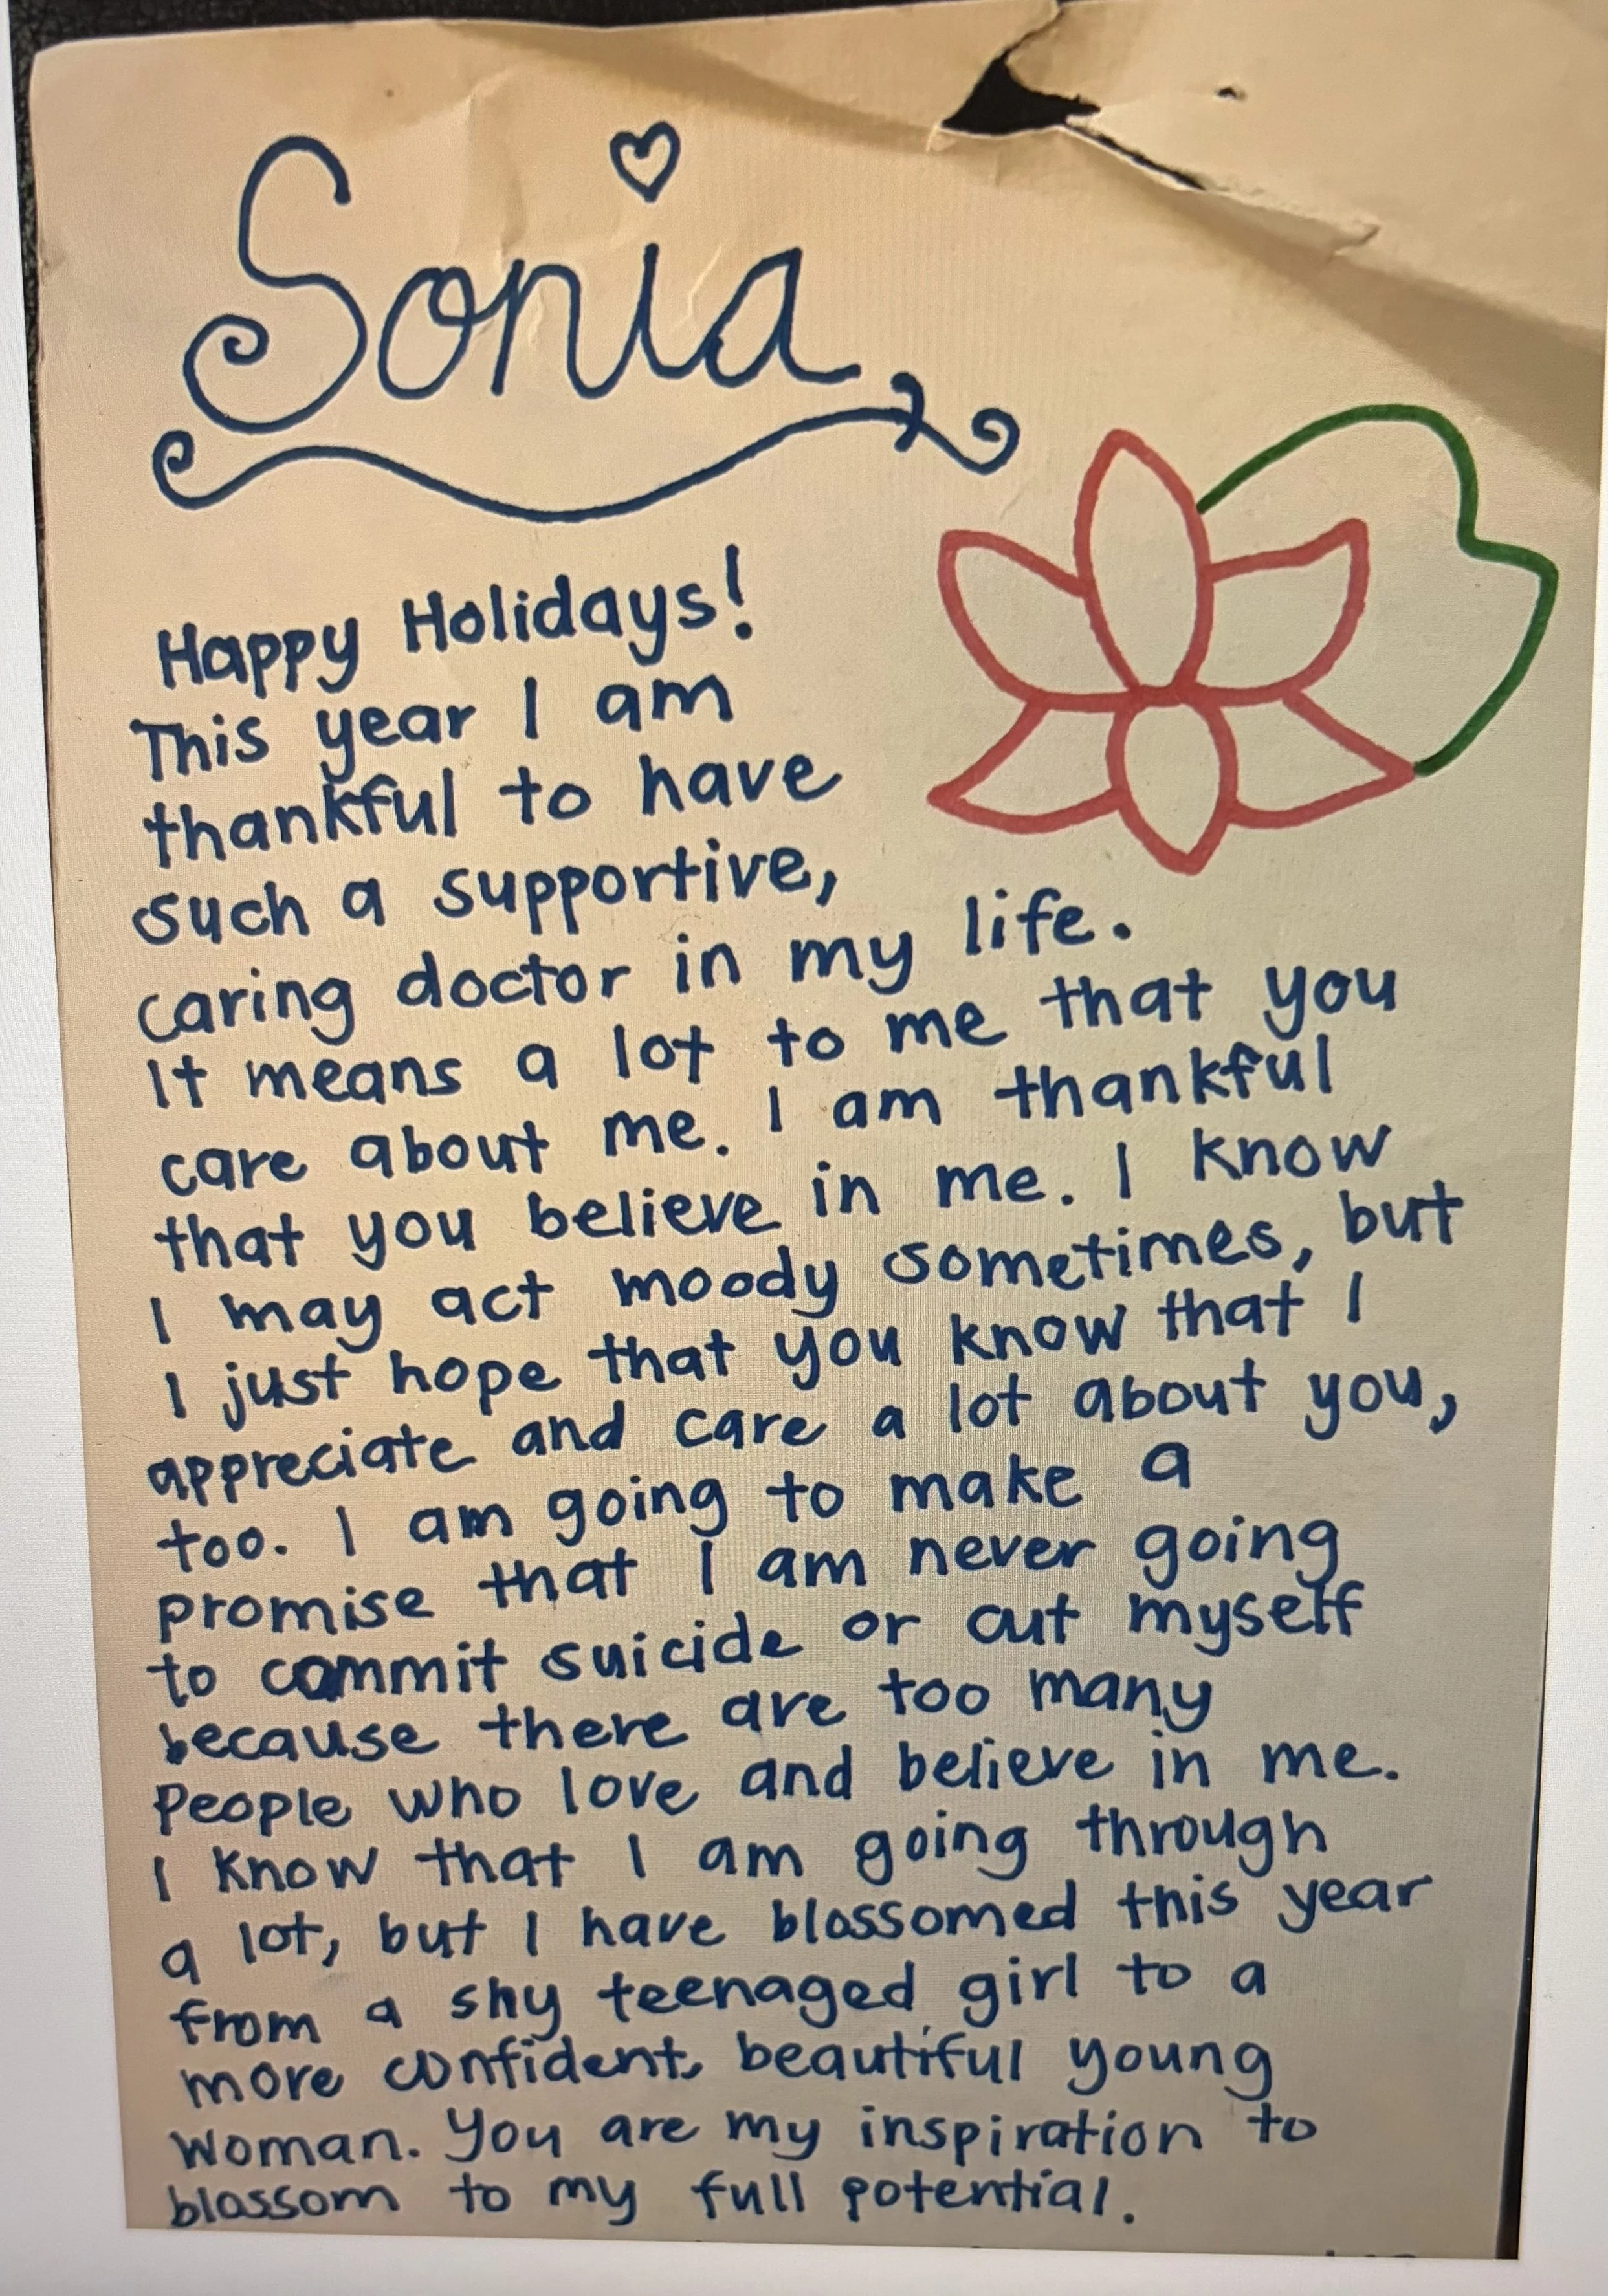 Sonia,
Happy Holidays!
This year I am
thankful to have
such a supportive,
caring doctor in my life.
It means a lot to me that you
care about me. I am thankful
that you believe in me. I know
I may act moody sometimes, but
I just hope that you know that I
appreciate and care a lot about you,
too. I am going to make a
promise that I am never going
to commit suicide or cut myself
because there are too many
people who love and believe in me.
I know that I am going through
a lot, but I have blossomed this year
from a shy teenaged girl to a
more confident, beautiful young
woman. You are my inspiration to
blossom to my full potential.